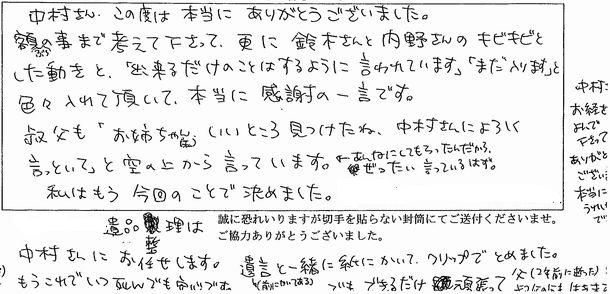 中村さん、この度は本当にありがとうございました。
額の事まで考えて下さって、更に鈴木さんと内野さんのキビキビと
した動きと、「出来るだけのことはするように言われています」「まだ入ります」と
色々入れて頂いて、本当に感謝の一言です。
叔父も「お姉ちゃん、いいところ見つけたね、中村さんによろしく
言っといて」と空の上から言っています。←あんなにしてもらったんだから、
ぜったい言っているはず。
私はもう今回のことで決めました。
遺品整理は
誠に恐れいりますが切手を貼らない封筒にてご送付くださいませ。
ご協力ありがとうございました。
中村さんにお任せします。
遺言と一緒に紙にかいて、クリップでとめました。
もうこれでいつ死んでも
できるだけ頑張って
父(2年前に亡った)
中村
お経を
よんで
下さって
ありがと
ござい
本当に